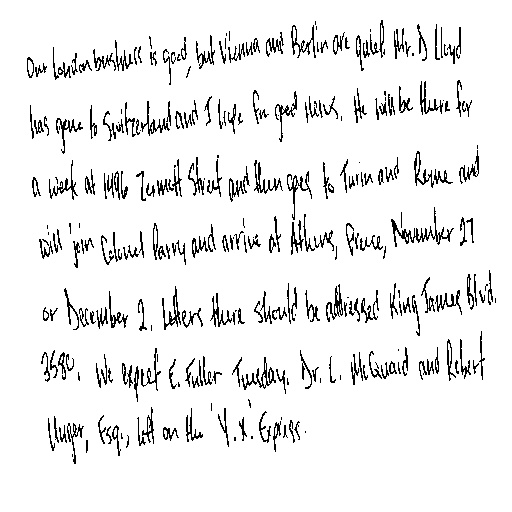 Our London business is good, but Vienna and Berlin are quiet. Mr. D Lloyd
has gone to Switzerland and I hope for good news. He will be there for
a week at 1496 Zermott Street and then goes to Turin and Rome and
will join Colonel Parry and arrive at Athens, Greece, November 27
or December 2. Letters there should be addressed King James Blvd.
3580. We expect E. Fuller Tuesday. Dr. L. McQuaid and Robert
Unger, Esq., left on the 'Y.X.' Express.